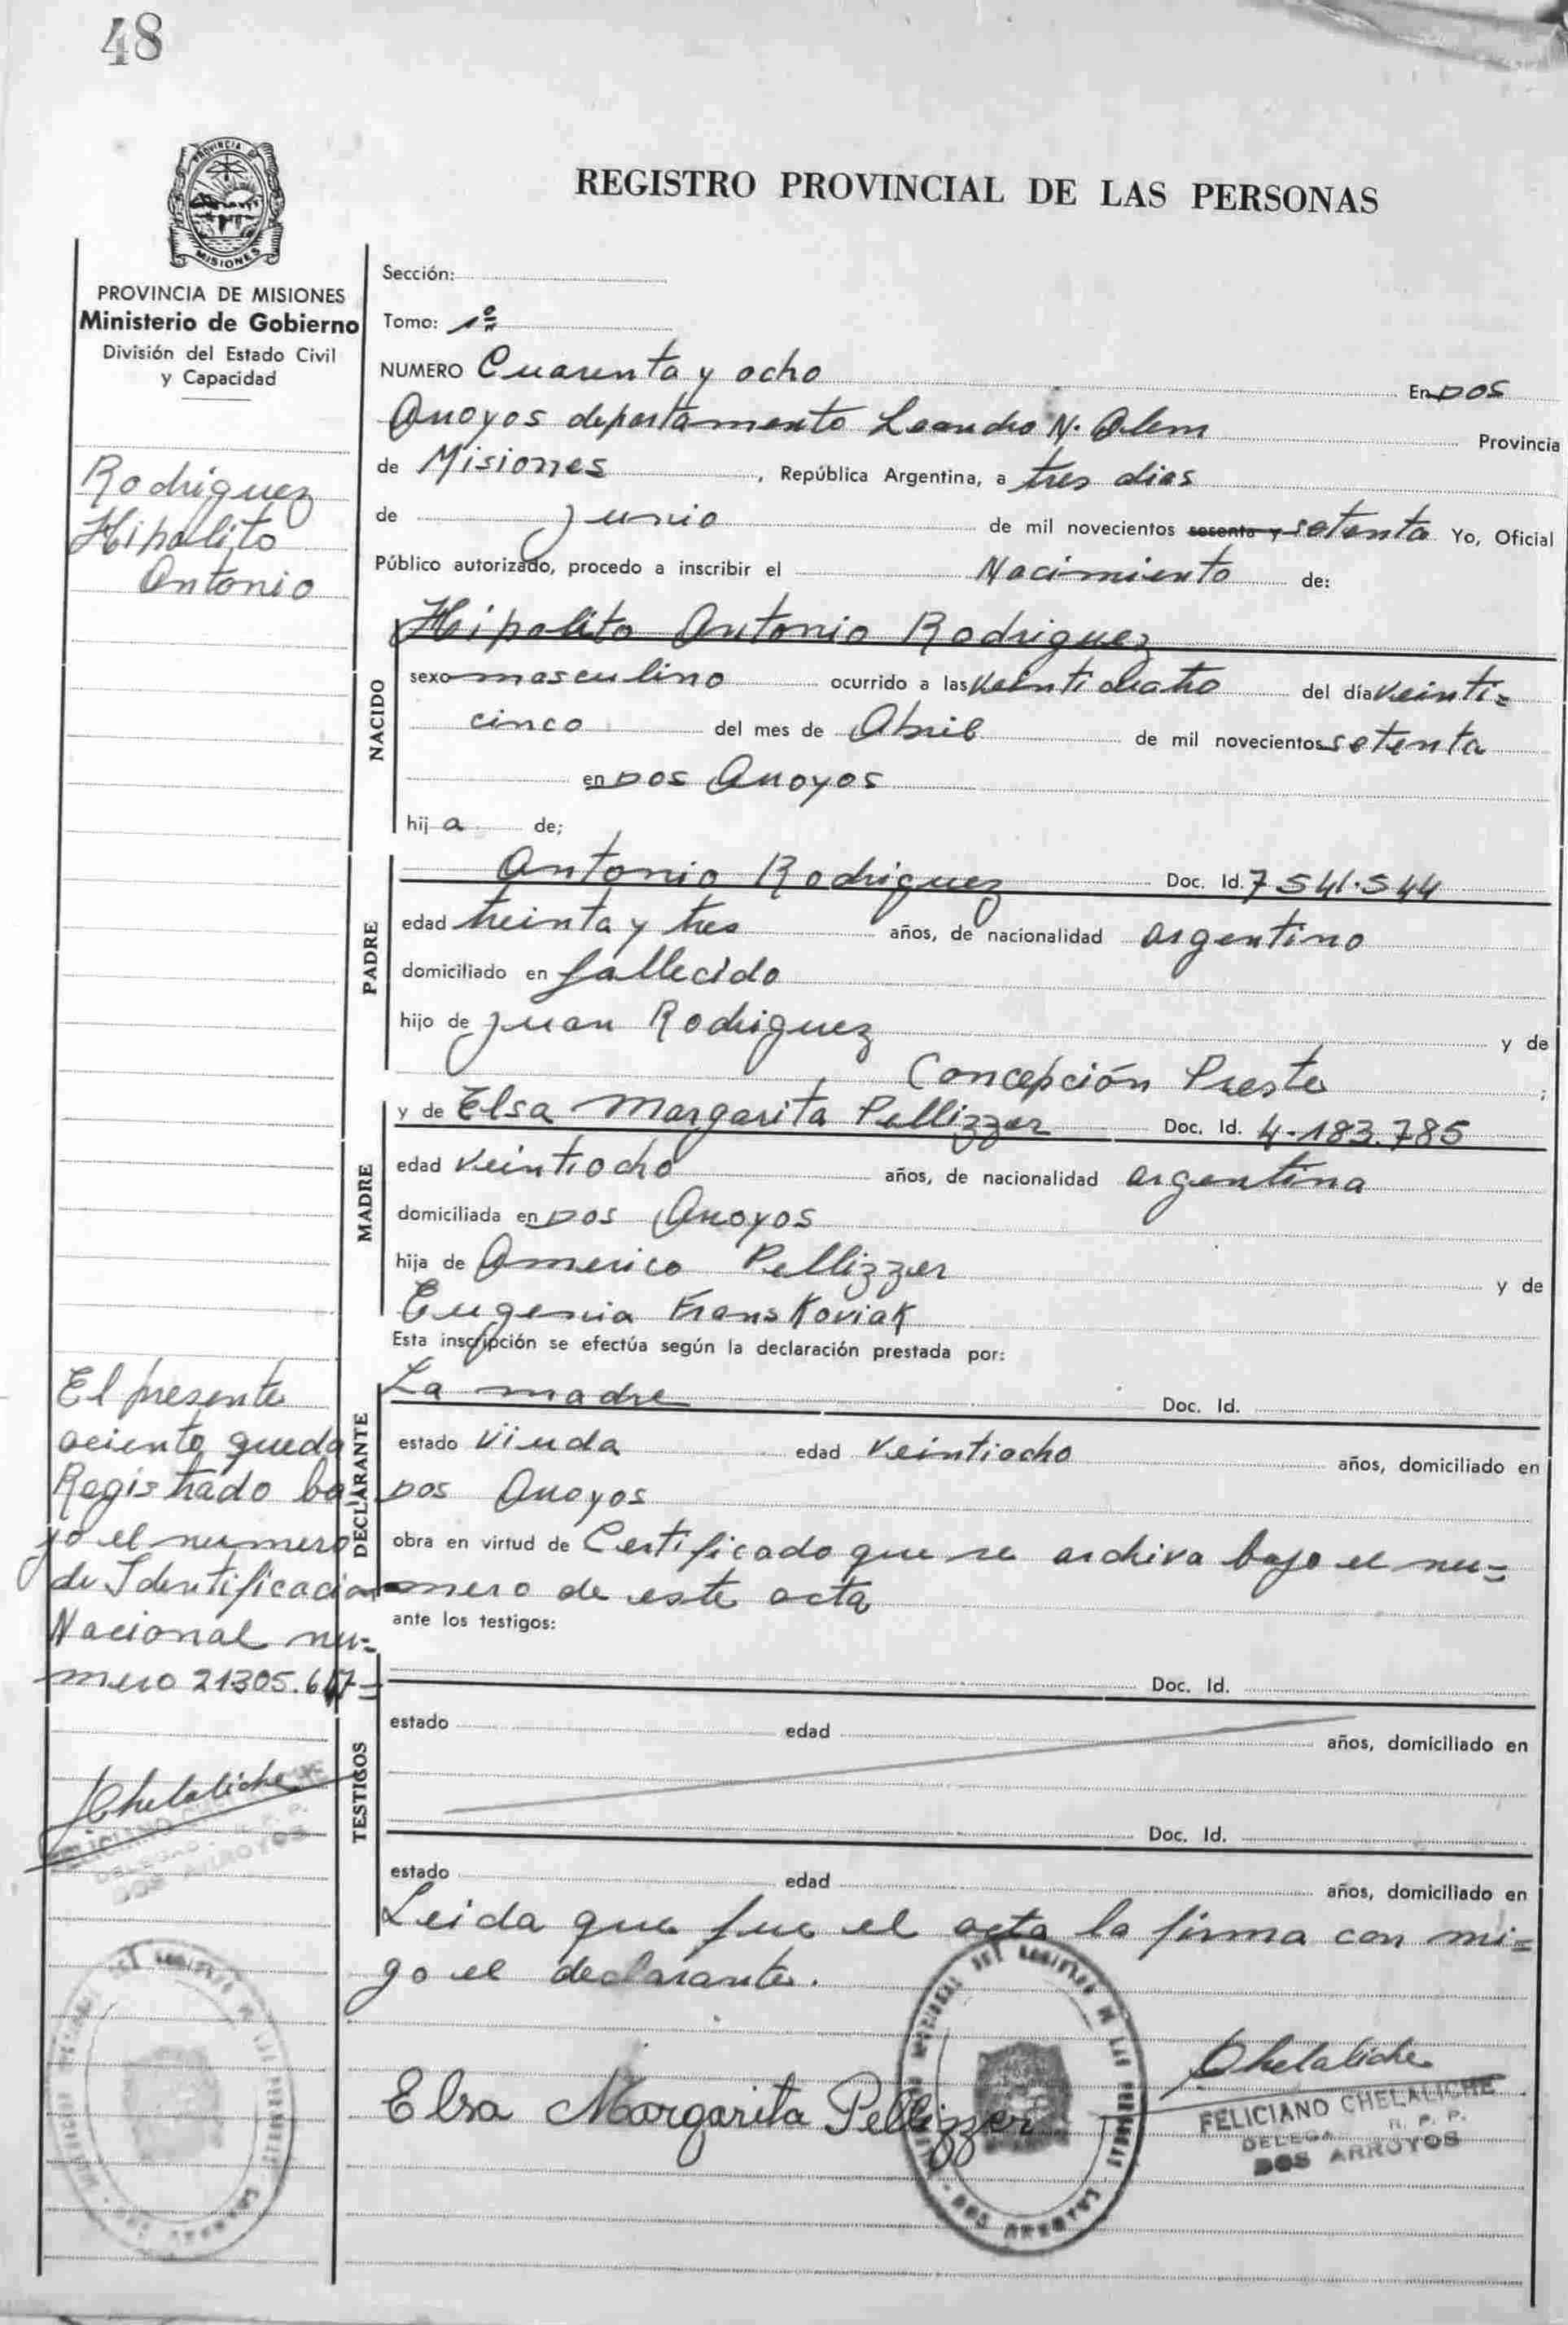 48
PROVINCIA DE
MISIONES
REGISTRO PROVINCIAL DE LAS PERSONAS
PROVINCIA DE MISIONES
Ministerio de Gobierno
División del Estado Civil
y Capacidad
Rodriguez
Hipolito
Antonio
Sección:
Tomo: 1º
NUMERO Cuarenta y ocho En DOS
Arroyos departamento Leandro N. Alem Provincia
de Misiones, República Argentina, a tres dias
de Junio de mil novecientos sesenta y setenta Yo, Oficial
Público autorizado, procedo a inscribir el Nacimiento de:
NACIDO
Hipolito Antonio Rodriguez
sexo masculino ocurrido a las veinticuatro del día veinti=
cinco del mes de Abril de mil novecientos setenta
en DOS Arroyos
hij a de;
PADRE
Antonio Rodriguez Doc. Id. 7541.544
edad treinta y tres años, de nacionalidad argentino
domiciliado en fallecido
hijo de Juan Rodriguez y de
Concepción Preste ;
MADRE
y de Elsa Margarita Pellizzer Doc. Id. 4.183.785
edad veintiocho años, de nacionalidad argentina
domiciliada en DOS Arroyos
hija de Americo Pellizzer y de
Eugenia Franskoviak
Esta inscripción se efectúa según la declaración prestada por:
DECLARANTE
La madre Doc. Id.
estado viuda edad veintiocho años, domiciliado en
DOS Arroyos
obra en virtud de Certificado que se archiva bajo el nu=
mero de este acta
ante los testigos:
El presente
aciento queda
Registrado ba
jo el numero
de Identificacion
Nacional nu=
mero 21305.617=
Chelaliche
FELICIANO CHELALICHE
DELEGA R. P. P.
DOS ARROYOS
TESTIGOS
Doc. Id.
estado edad años, domiciliado en
Doc. Id.
estado edad años, domiciliado en
Leida que fue el acta la firma con mi=
go el declarante.
Elsa Margarita Pellizzer
Chelaliche
FELICIANO CHELALICHE
DELEGA R. P. P.
DOS ARROYOS